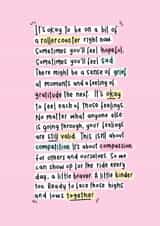 It's okay to be on a bit of
a rollercoaster right now.
Sometimes you'll feel hopeful.
Sometimes you'll feel sad
There might be a sense of grief
at moments and a feeling of
gratitude the next. It's okay
to feel each of those feelings.
No matter what anyone else
is going through, your feelings
are still valid. This isn't about
competition. It's about compassion
for others and ourselves. So we
can show up for the ride every
day, a little braver. A little kinder
too. Ready to face those highs
and lows together.